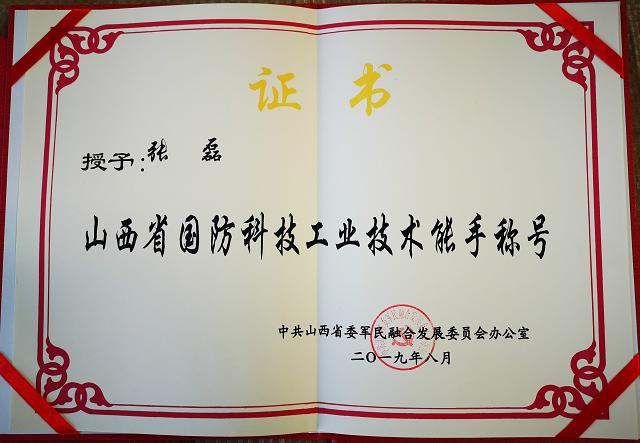 证书
授予：张磊
山西省国防科技工业技术能手称号
中共山西省委军民融合发展委员会办公室
二〇一九年八月